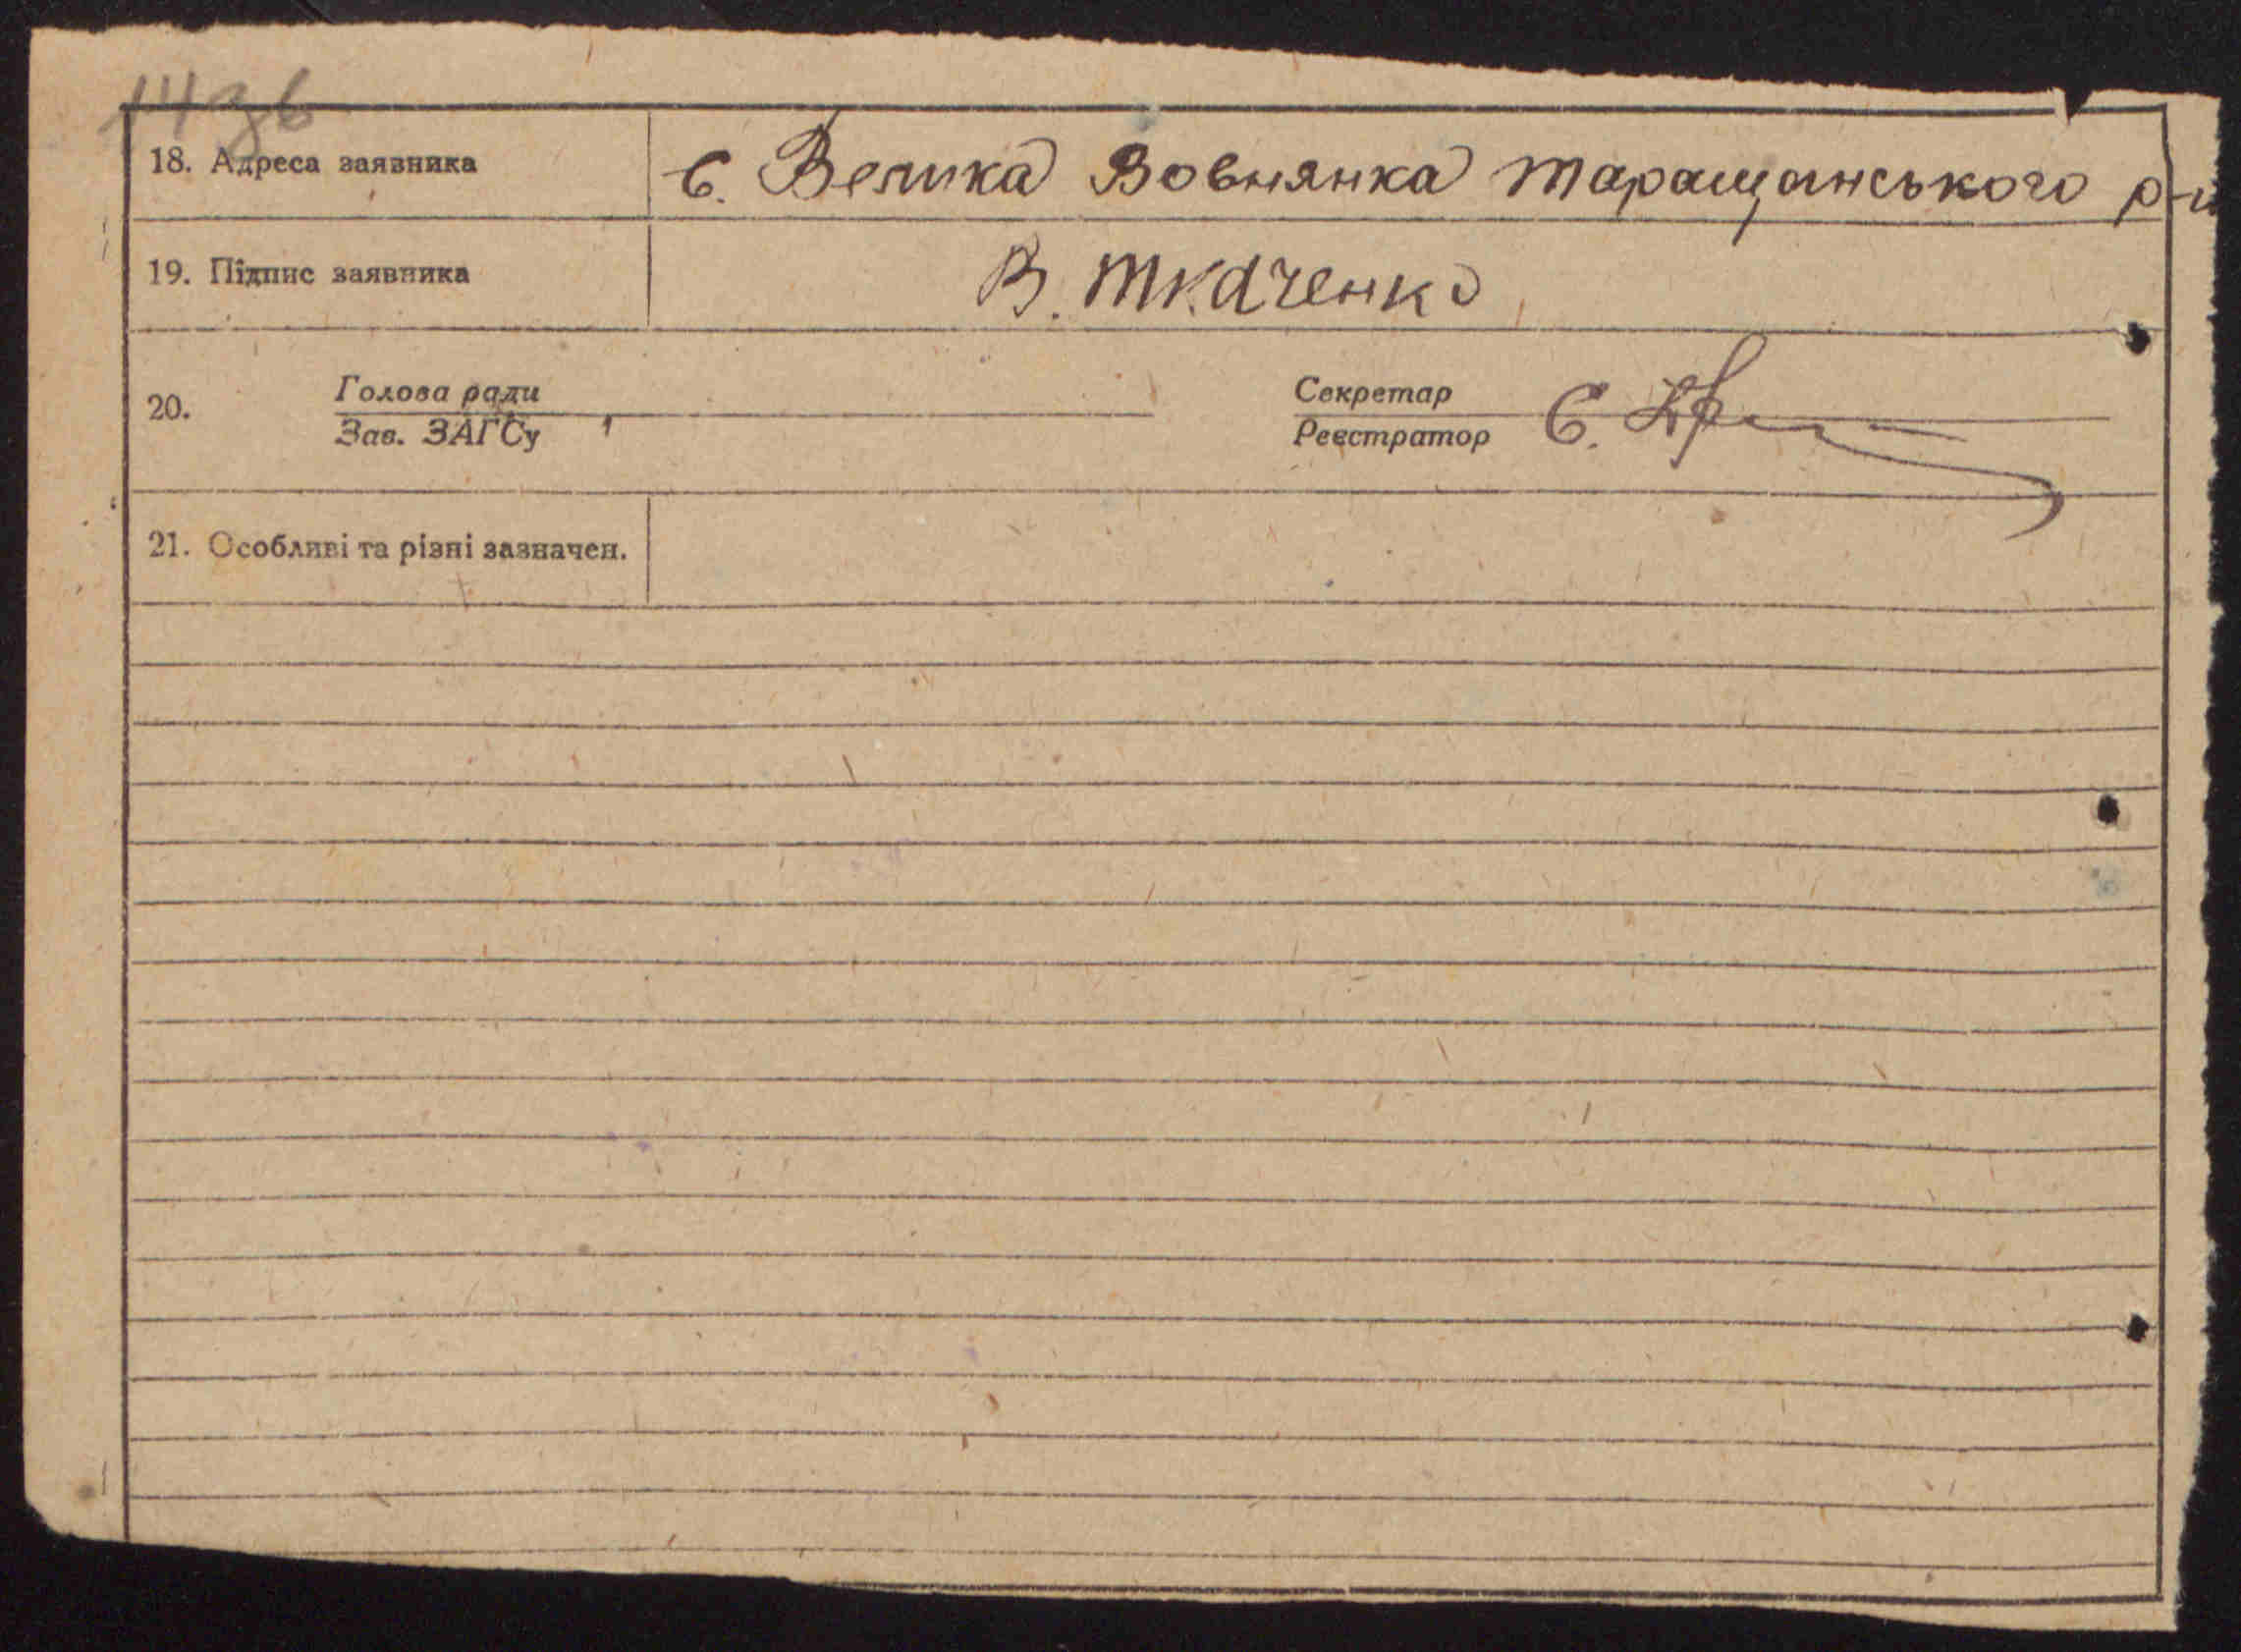 114 зв
18. Адреса заявника с. Велика Вовнянка Таращанського р-н
19. Підпис заявника В. Ткаченко
20. Голова ради Секретар
Зав. ЗАГСу Реєстратор Є.
21. Особливі та різні зазначен.